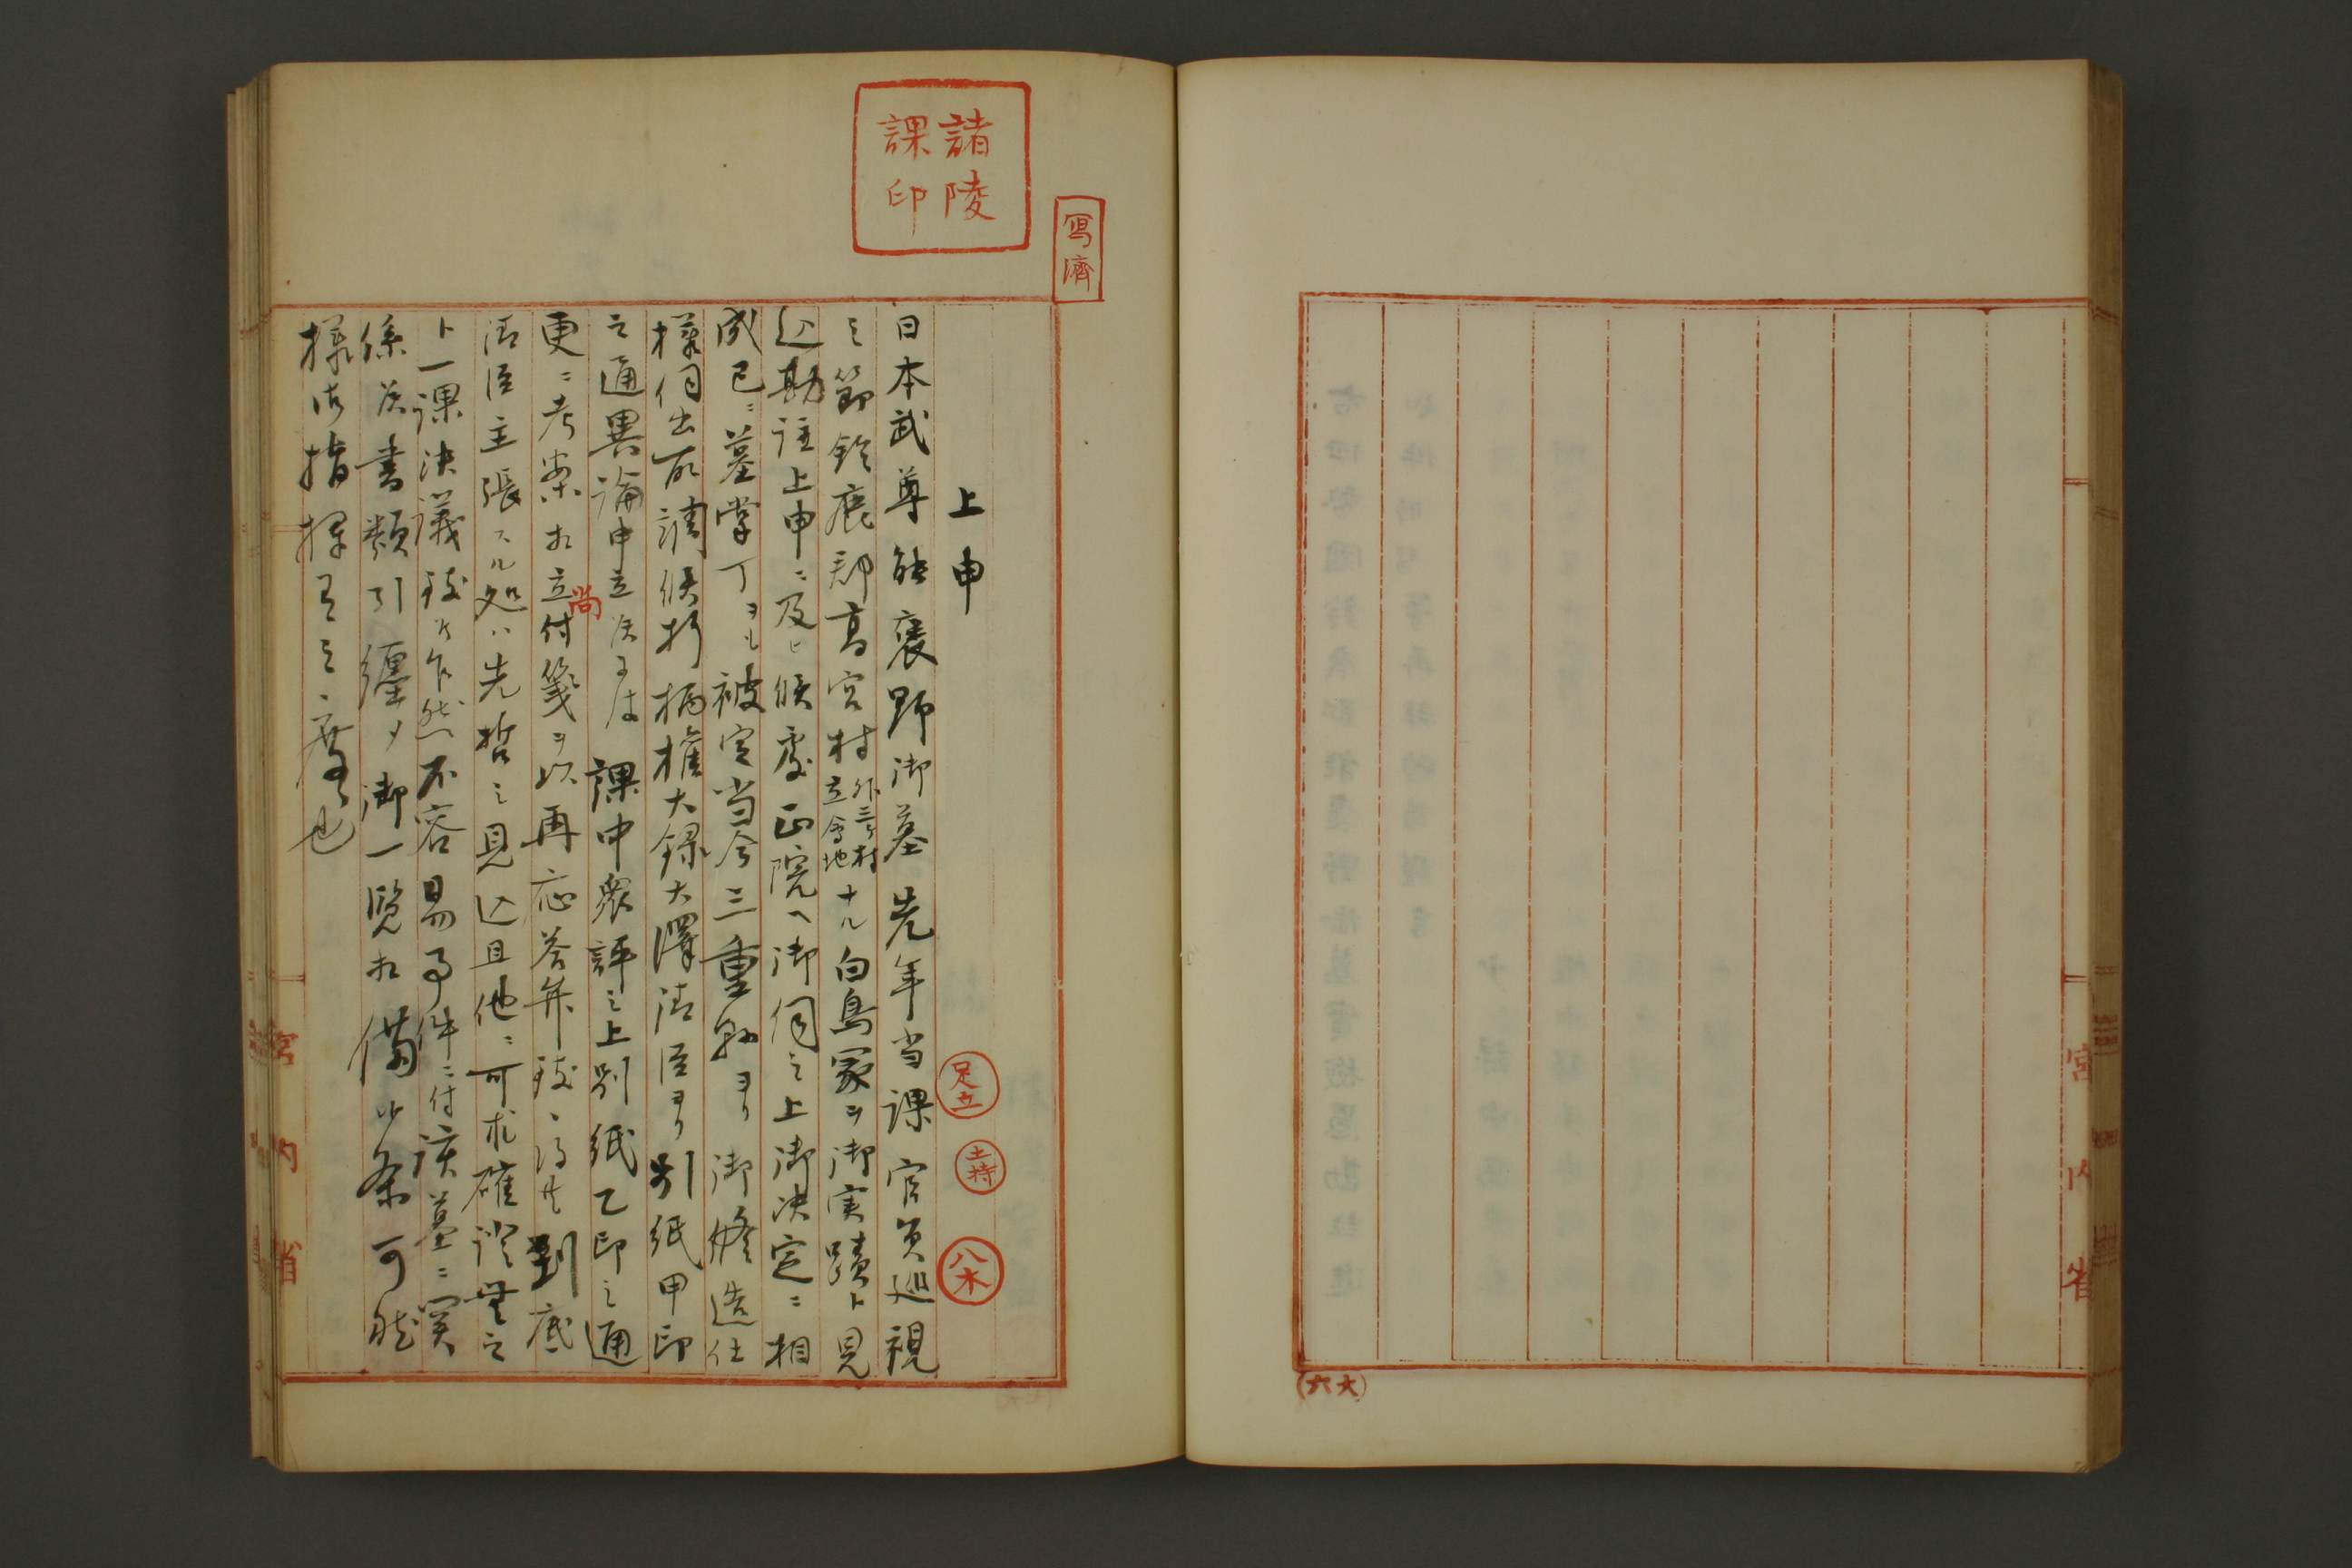 宮内省
(六大)
寫濟
諸陵
課印
上申
足立
土持
八木
日本武尊能褒野御墓先年当課官員巡視
之節鈴鹿郡高宮村外三ヶ村立會地ナル白鳥冢ヲ御実蹟ト見
込勘註上申ニ及ヒ候處正院ヘ御伺之上御決定ニ相
成已ニ墓掌丁ヲモ被定当今三重縣ヨリ御修造仕
様伺出取調候折柄権大録大澤清臣ヨリ別紙甲印
之通異論申立候ニ付課中衆評之上別紙乙印之通
更ニ考案相立尚付箋ヲ以再応答弁致候得共到底
清臣主張スル処ハ先哲之見込且他ニ可求確證無之
ト一課決議致候乍然不容易事件ニ付該墓ニ関
係候書類引纏メ御一覧相備候条可然
様御指揮有之度候也
宮内省